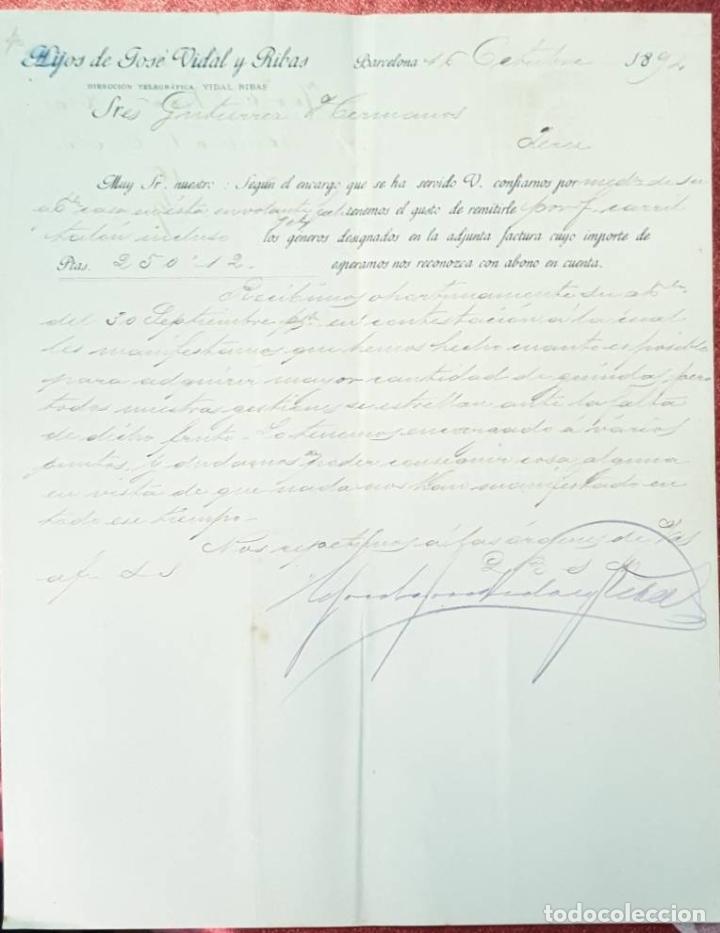 Hijos de José Vidal y Ribas Barcelona 16 Octubre 1894
DIRECCIÓN TELEGRÁFICA, VIDAL RIBAS
Sres Gutierrez Hermanos
Jerez
Muy Sr. nuestro: Según el encargo que se ha servido V. confiarnos por medio de su
casa en ésta tenemos el gusto de remitirle por f. carril
talon incluso los géneros designados en la adjunta factura cuyo importe de
Ptas. 250'12. esperamos nos reconozca con abono en cuenta.
Recibimos oportunamente su
del 30 Septiembre en contestacion á la cual
les manifestamos que hemos hecho cuanto es posible
para adquirir mayor cantidad de guindas, pero
todas nuestras gestiones se estrellan ante la falta
de dicho fruto. Lo tenemos encargado á varios
puntos, y dudamos poder conseguir cosa alguna
en vista de que nada nos han manifestado en
todo ese tiempo.
Nos repetimos á las órdenes de Vds
af. S S
todocoleccion
todocoleccion.net